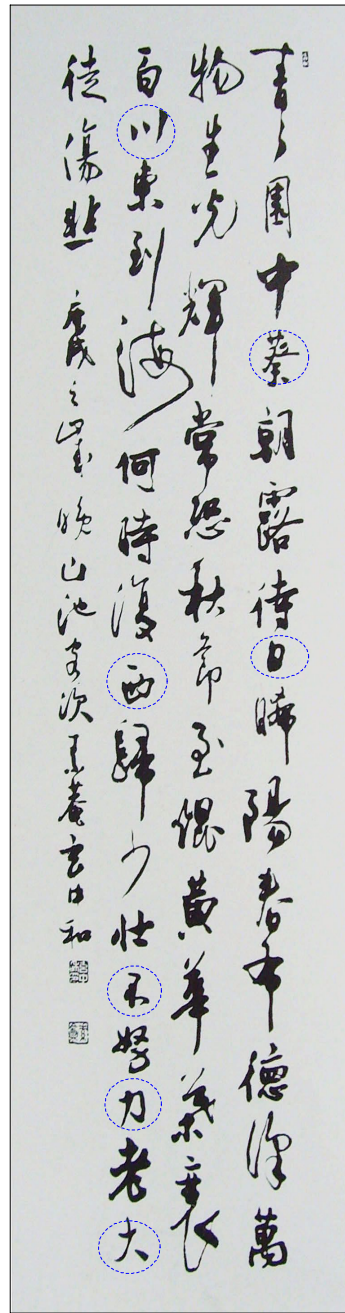 青々園中葵朝露待日晞陽春布德澤萬
物生光輝常恐秋節至焜黃華葉衰
百川東到海何時復西歸少壯不努力老大
徒傷悲 庚戌之歲晚山池 次 菴 和